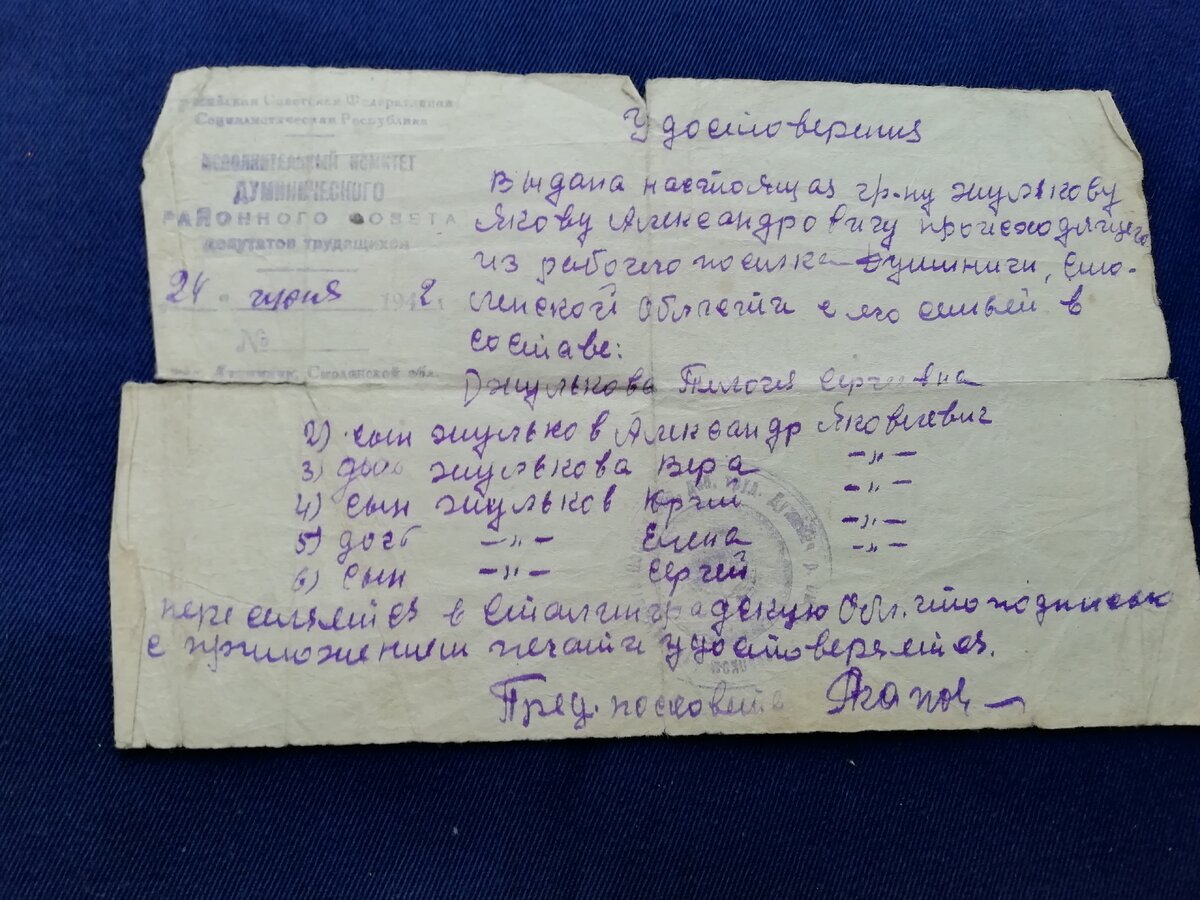 Российская Советская Федеративная
Социалистическая Республика
ИСПОЛНИТЕЛЬНЫЙ КОМИТЕТ
ДУМИНИЧЕСКОГО
РАЙОННОГО СОВЕТА
депутатов трудящихся
24 " июня 1942 г
№
Думиничи, Смоленской обл.
Удостоверения
Выдана настоящая гр-ну Жулькову
Якову Александровичу происходящего
из рабочего поселка Думиничи, Смо-
ленской Области с его семьей в
составе:
1) Жулькова Пелогия Сергеевна
2) сын Жульков Александр Яковлевич
3) дочь Жулькова Вера -"-
4) сын Жульков Юрий -"-
5) дочь -"- Елена -"-
6) сын -"- Сергей -"-
переселяется в Сталинградскую Обл. что подписью
с приложением печати удостоверяется.
Пред. поссовета Агапов